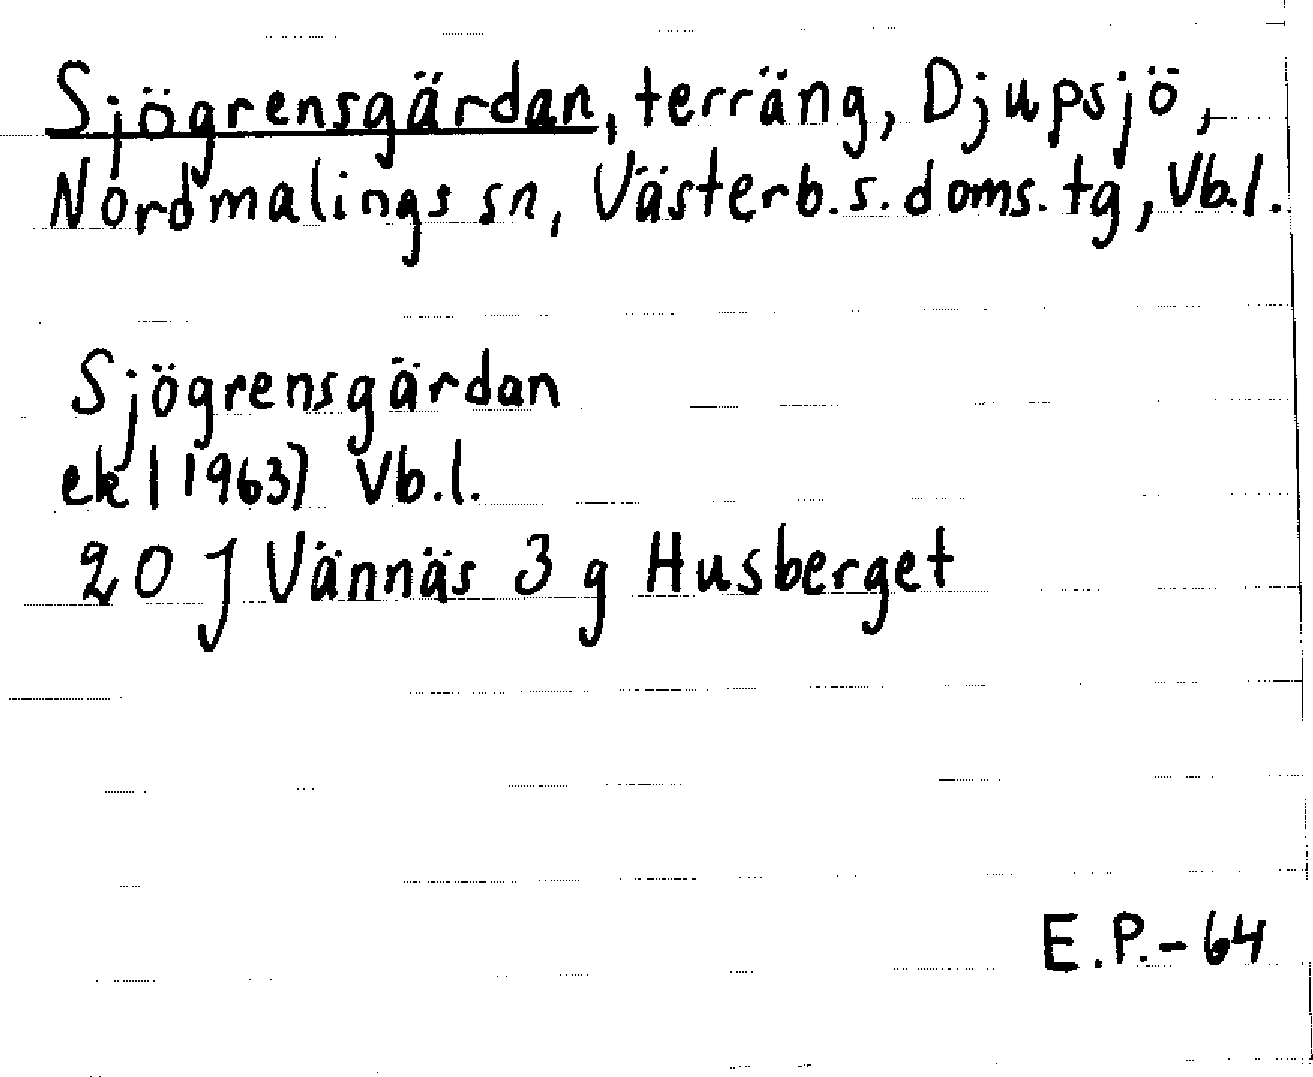 Sjögrensgärdan, terräng, Djupsjö,
Nordmalings sn, Västerb.s.doms.tg, Vb.l.
Sjögrensgärdan
ek (1963) Vb.l.
20 J Vännäs 3 g Husberget
E.P.-64